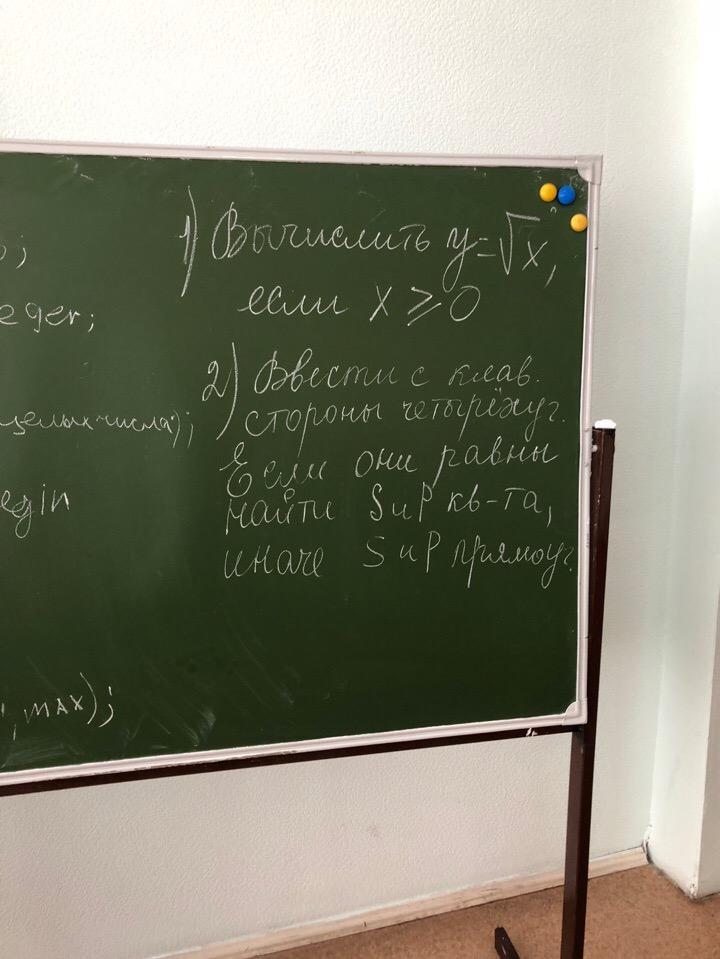 eger;
целых числа');
egin
, max);
1) Вычислить y=√x,
если x ⩾ 0
2) Ввести с клав.
стороны четырёхуг.
Если они равны
найти S и P кв-та,
иначе S и P прямоуг.